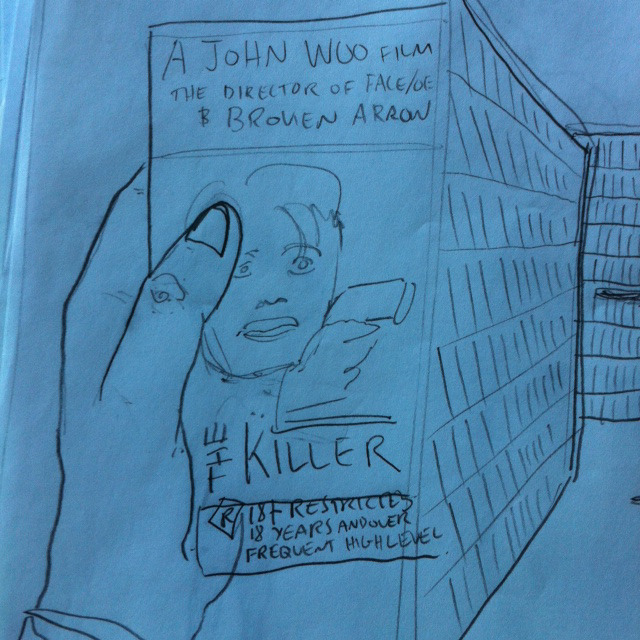 A JOHN WOO FILM
THE DIRECTOR OF FACE/OE
& BROKEN ARROW
THE KILLER
18F RESTRICTED
18 YEARS AND OVER
FREQUENT HIGH LEVEL